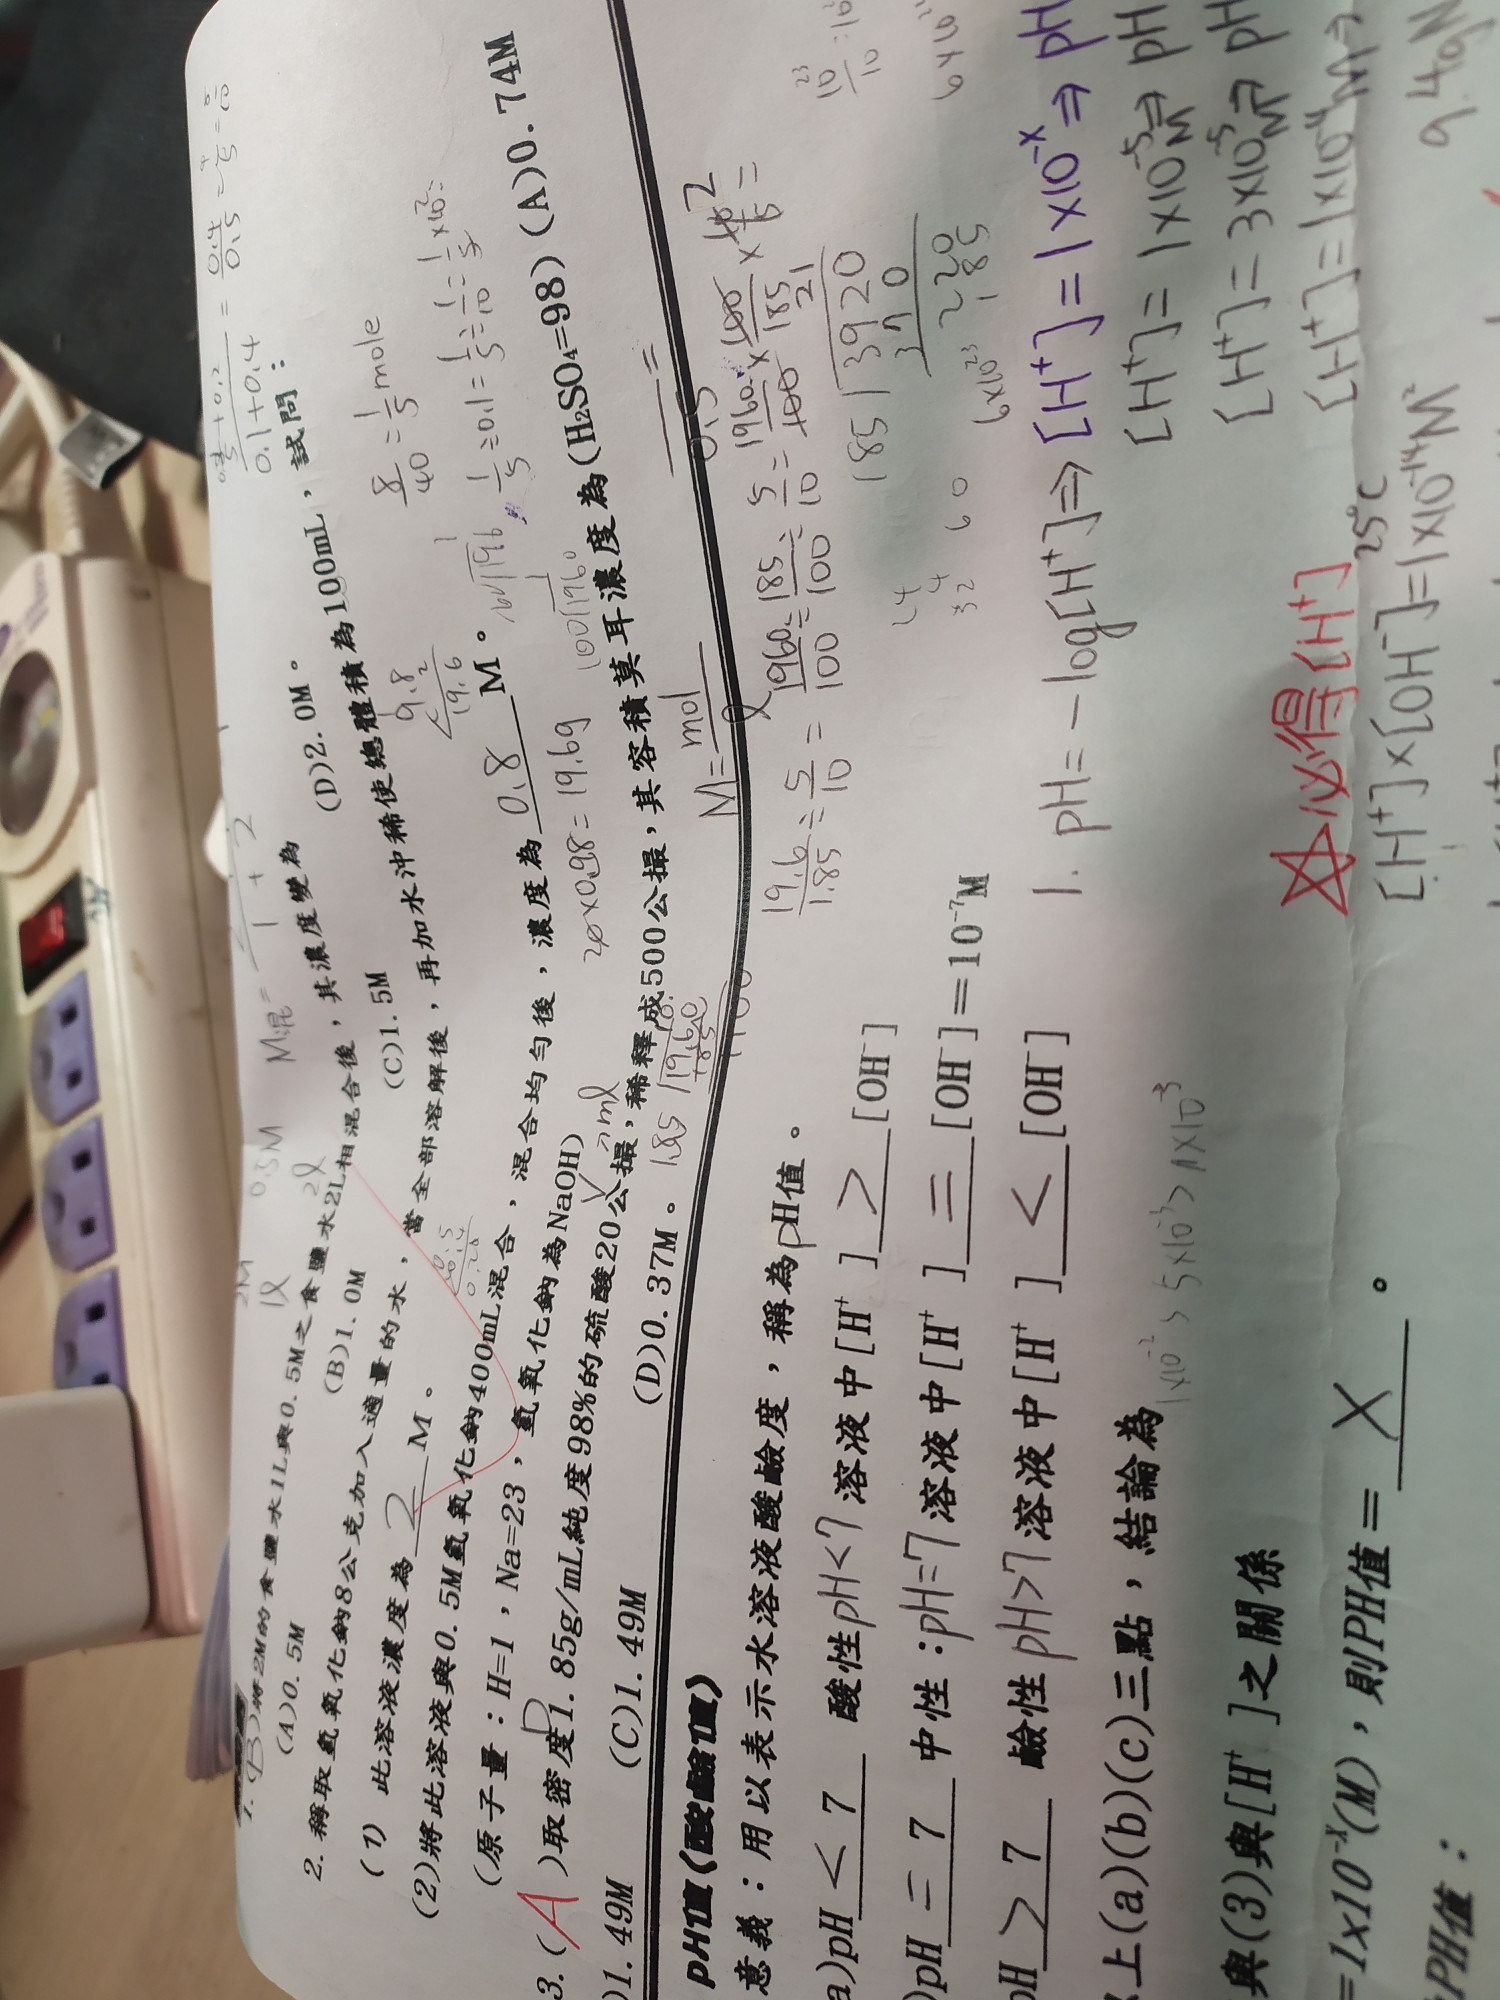 1.(B)將2M的食鹽水1L與0.5M之食鹽水2L相混合後，其濃度變為
(A)0.5M (B)1.0M (C)1.5M (D)2.0M。
2.稱取氫氧化鈉8公克加入適量的水，當全部溶解後，再加水沖稀使總體積為100mL，試問：
(1) 此溶液濃度為 2 M。
(2)將此溶液與0.5M氫氧化鈉400mL混合，混合均勻後，濃度為 0.8 M。
(原子量：H=1，Na=23，氫氧化鈉為NaOH)
3.(A)取密度1.85g/mL純度98%的硫酸20公撮，稀釋成500公撮，其容積莫耳濃度為(H₂SO₄=98) (A)0.74M
)1.49M (C)1.49M (D)0.37M。
2M 0.5M
1l 2l
M混=
8/40 = 1/5 mole
20×0.98=19.6g
M=mol/l
19.6/1.85 ÷ 5/10 = 1960/100 ÷ 185/100 ÷ 5/10
185 3920
21
370
220
185
PH值(酸鹼值)
意義：用以表示水溶液酸鹼度，稱為pH值。
a)pH < 7 酸性pH<7溶液中[H⁺] > [OH⁻]
)pH = 7 中性：pH=7溶液中[H⁺] = [OH⁻]=10⁻⁷M
pH > 7 鹼性pH>7溶液中[H⁺] < [OH⁻]
以上(a)(b)(c)三點，結論為
1×10⁻² > 5×10⁻³ > 1×10⁻³
與(3)與[H⁺]之關係
=1x10⁻ˣ(M)，則PH值= X 。
PH值：
1. pH=-log[H⁺]⇒[H⁺]=1×10⁻ˣ⇒pH
[H⁺]=1×10⁻⁵M⇒pH
[H⁺]=3×10⁻⁵M⇒pH
☆必得[H⁺] [H⁺]=1×10⁻¹¹M⇒
25°C
[H⁺]×[OH⁻]=1×10⁻¹⁴M²